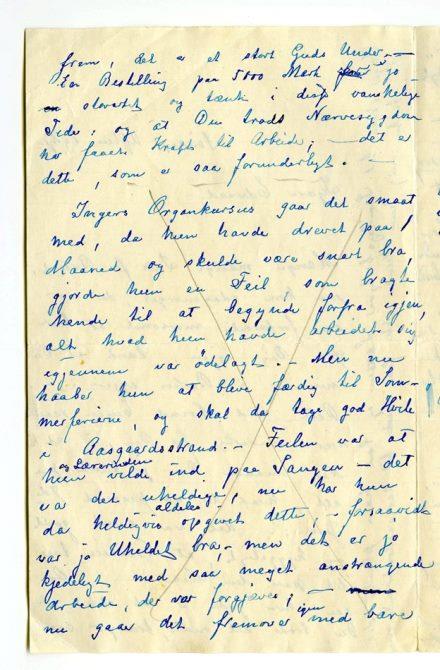 frem, det er et stort Guds Under. —
En Bestilling paa 5000 Mark er jo
storartet og tænk i disse vanskelige
Tider, og at Du trods Nervesygdom
har faaet Kraft til Arbeide, — det er
dette, som er saa forunderligt. —
Ingers Organkursus gaar det smaat
med, da hun havde drevet paa 1
Maaned og skulde være snart bra,
gjorde hun en Feil, som bragte
hende til at begynde forfra igjen,
alt hvad hun havde arbeidet sig
igjennem var ödelagt. — Men nu
haaber hun at bleve færdig til Som-
merferierne, og skal da tage god Hvile
i Aasgaardsstrand. — Feilen var at
hun og Lærerinden vilde ind paa Sangen — det
var det uheldige, nu har hun
da heldigvis aldeles opgivet dette, — forsaavidt
var jo Uheldet bra, — men det er jo
kjedeligt med saa meget anstrængende
arbeide, der var forgjæves; —
nu gaar det fremover igjen med bare